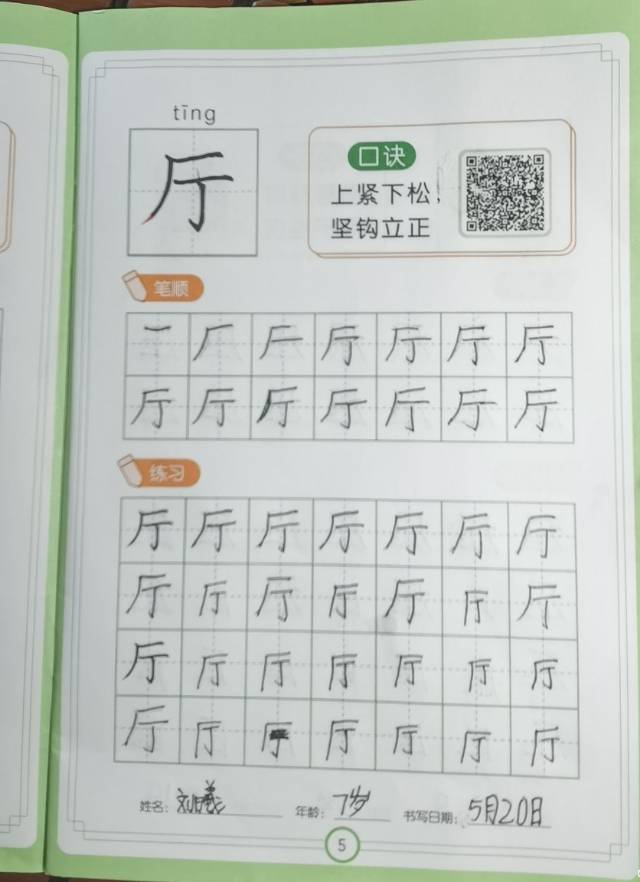 tīng
厅
口诀
上紧下松，
坚钩立正
笔顺
一 厂 厂 厅 厅 厅 厅
厅 厅 厅 厅 厅 厅 厅
练习
厅 厅 厅 厅 厅 厅 厅
厅 厅 厅 厅 厅 厅 厅
厅 厅 厅 厅 厅 厅 厅
厅 厅 厅 厅 厅 厅
姓名： 年龄：7岁 书写日期：5月20日
5